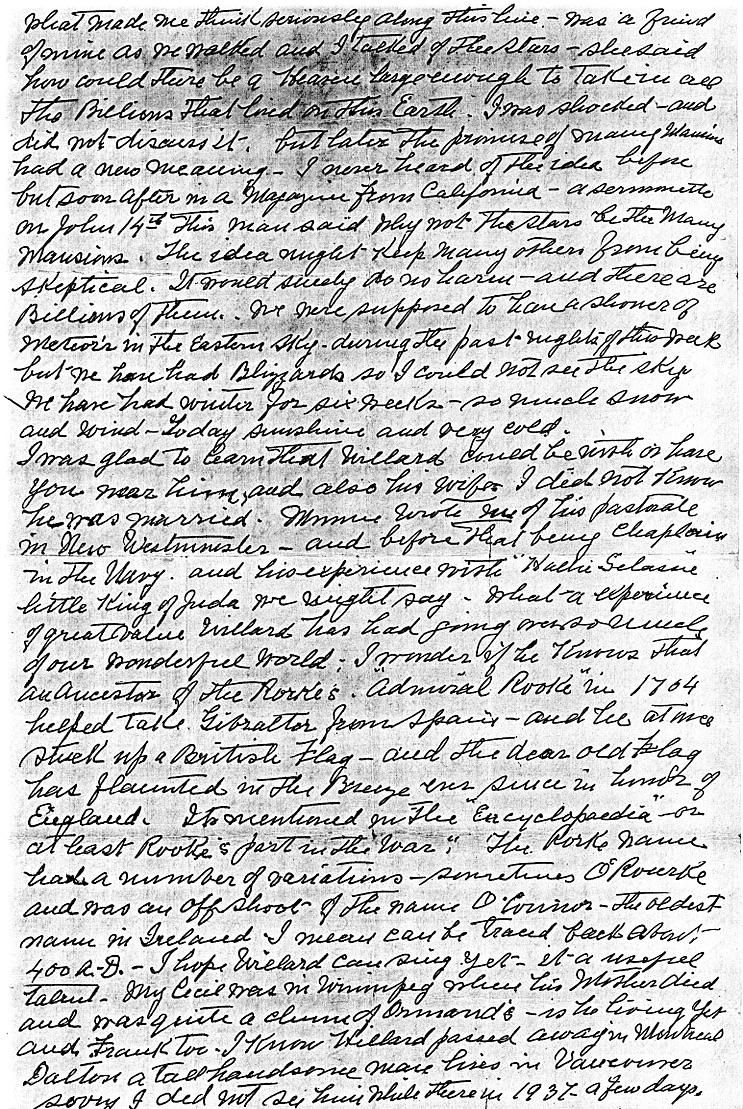 What made me think seriously along this line - was a friend
of mine as we walked and I talked of the stars - she said
how could there be a Heaven large enough to take in all
the Billions that lived on this Earth. I was shocked - and
did not discuss it. but later the promise of many Mansions
had a new meaning - I never heard of the idea before
but soon after in a "Magazine from California - a sermonette
on John 14th This man said why not the stars be the Many
Mansions. The idea might keep many others from being
skeptical. It would surely do no harm - and there are
Billions of them. We were supposed to have a shower of
meteors in the Eastern sky - during the past nights of this week
but we have had Blizzards so I could not see the sky
We have had winter for six weeks - so much snow
and wind - Today sunshine and very cold.
I was glad to learn that Willard could be with or have
you near him, and also his wife I did not know
he was married. Minnie wrote me of his pastorate
in New Westminster - and before that being Chaplain
in the Navy. and his experience with "Hailie Selassie
little King of Juda we might say - what a experience
of great value Willard has had going over so much
of our wonderful world; I wonder if he knows that
an Ancestor of the Rorke's. "Admiral Rooke" in 1704
helped take Gibraltor from Spain - and he at once
stuck up a British Flag - and the dear old Flag
has flaunted in the Breeze ever since in honor of
England. Its mentioned in the "Encyclopaedia" - or
at least Rooke's part in the War"; The Rorke name
had a number of variations - sometimes O'Rourke
and was an offshoot of the name O'Connor - the oldest
name in Ireland I mean can be traced back about
400 A.D. - I hope Willard can sing yet - it a useful
talent - My Cecil was in Winnipeg when his Mother died
and was quite a chum of Ormand's - is he living yet
and Frank too. I know Hillard passed away in Montreal
Dalton a tall handsome man lives in Vancouver
sorry I did not see him while there in 1937 - a few days.